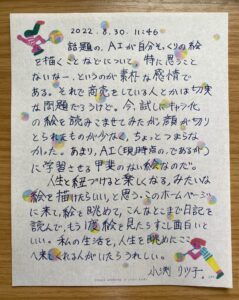 2022.8.30. 11:46
話題の、AIが自分そっくりの絵
を描くことなどについて。特に思うこと
ないなー、というのが素朴な感情で
ある。それで商売をしている人とかは切実
な問題だろうけど。今、試しにキャラ化
の絵を読みこませてみたが、顔が切り
とられたものが少なく、ちょっとつまらな
かった。あまり、AI(現時点の、であるが)
に学習させる甲斐のない絵なのだ。
人生と紐づけると楽しくなる、みたいな
絵を描けたらいい、と思う。このホームページ
に来て、絵を眺めて、こんなとこまで日記を
読んで、もう1度絵を見たらすこし面白いと
いい。私の生活を、人生を眺めにここ
へ来てくれる人がいたらうれしい。
小渕 リツ子.